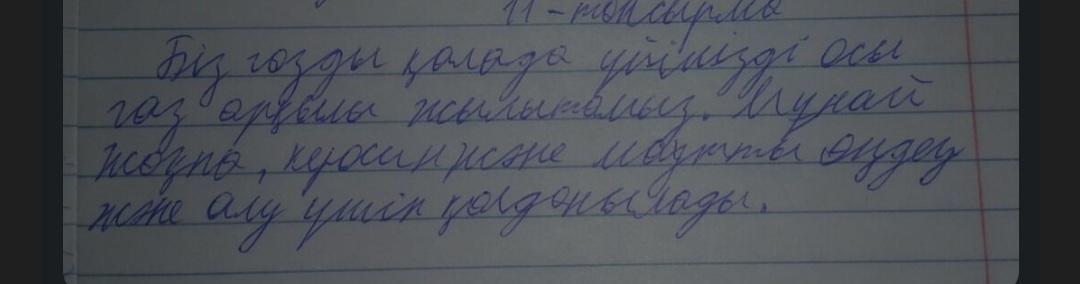 11-тапсырма
Біз газды қалада үйімізді осы
газ арқылы жылытамыз. Мұнай
жақпа, керосин және мазутты өңдеу
және алу үшін қолданылады.